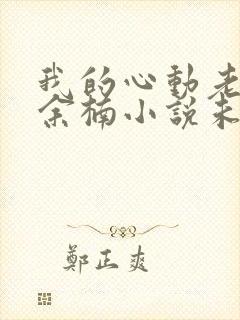 我的心動老
余楠小說未
鄭正爽